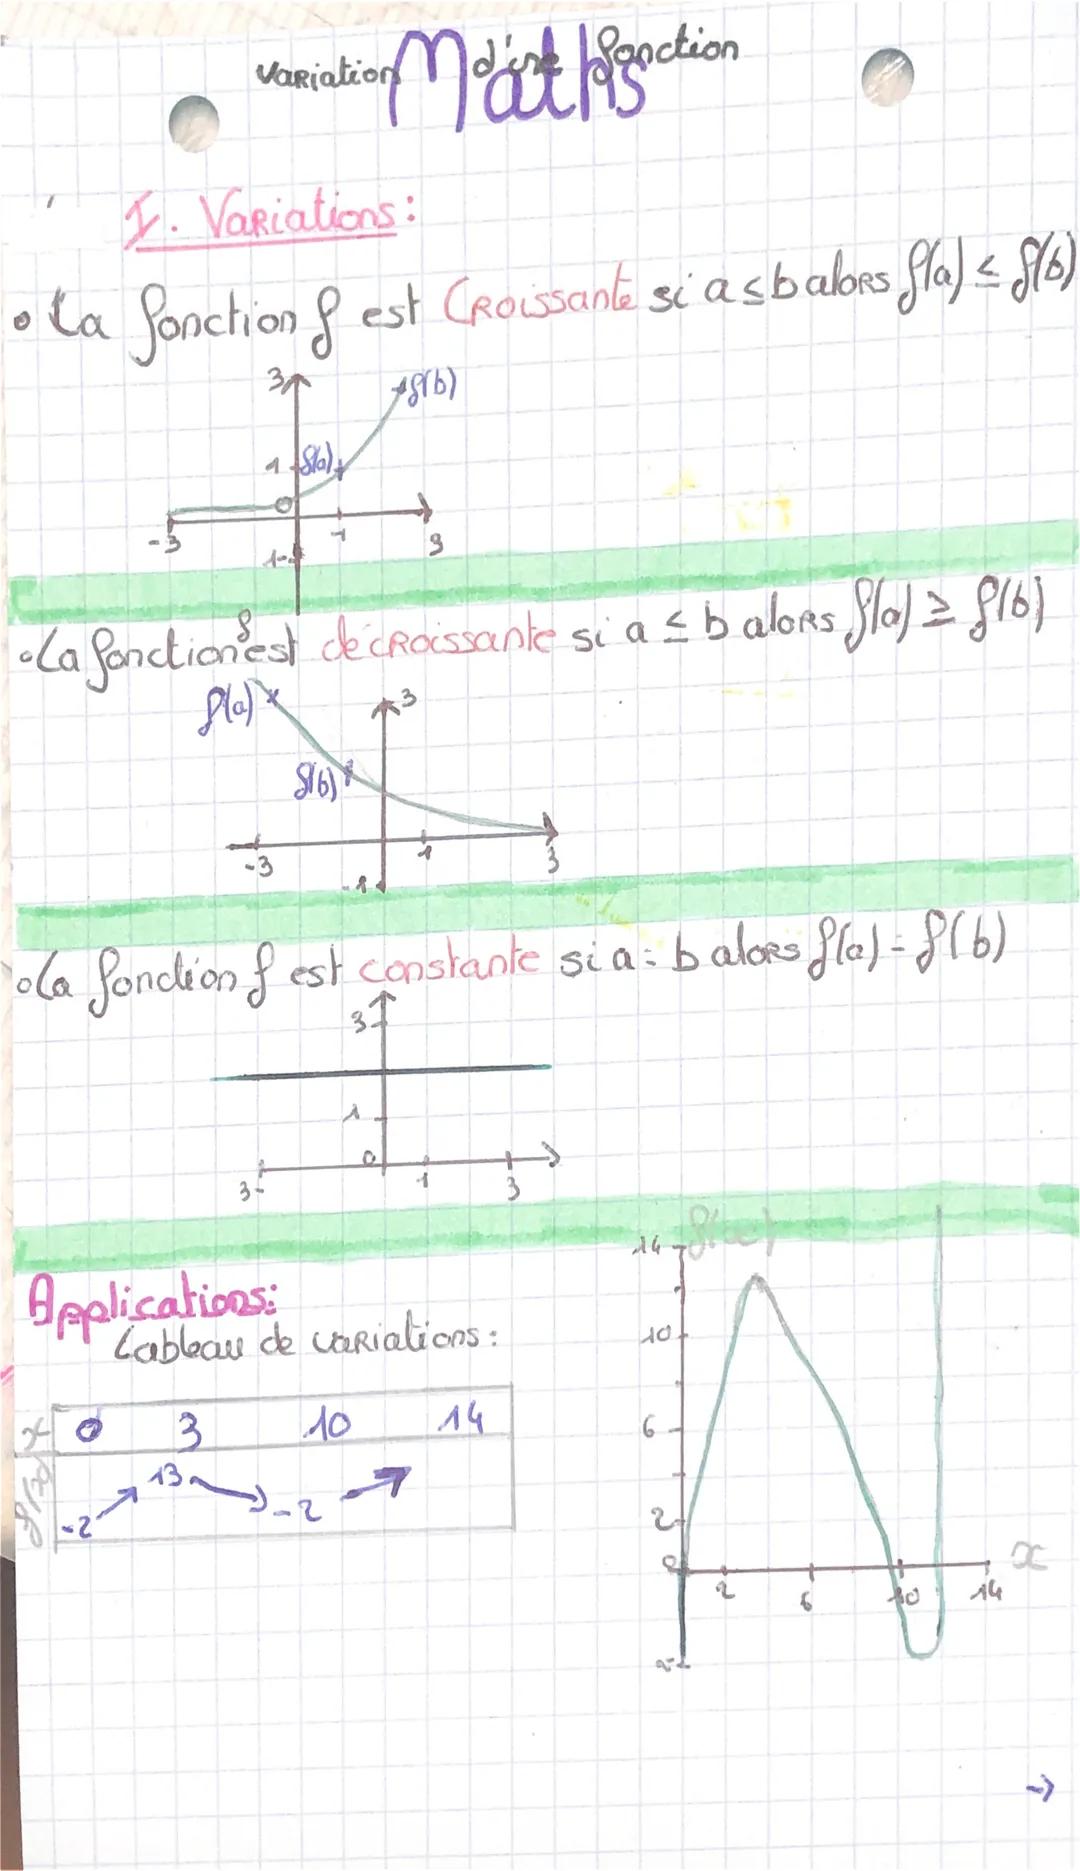 Variation d'une fonction
Maths
I. Variations:
• La fonction f est Croissante si a ≤ b alors f(a) ≤ f(b)
3
f(b)
1 f(a)
0
-3 1 3
1-
• La fonction f est décroissante si a ≤ b alors f(a) ≥ f(b)
f(a) 3
f(b)
-3 1 3
-1
• La fonction f est constante si a = b alors f(a) = f(b)
3
1
0
3- 1 3
14 f(x)
Applications:
tableau de variations:
10
x 0 3 10 14
6
f(x) -2 13 -2
2
0 x
2 6 10 14
→